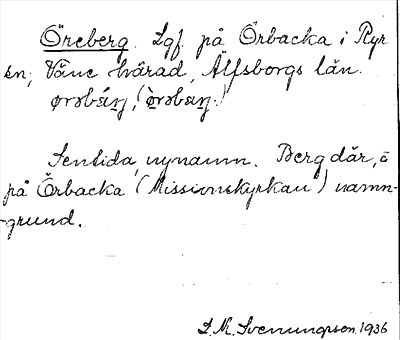 Öreberg. Lgf. på Örbacka i Ryr
sn, Väne härad, Älfsborgs län.
Sentida nynamn. Berg där, o
på Örbacka (Missionskyrkan) namn-
-grund.
S. M. Svenungsson. 1936